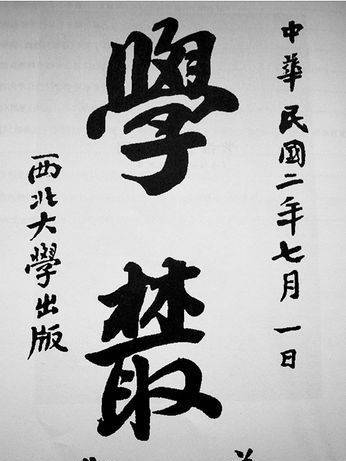 中華民國二年七月一日
學樷
西北大學出版